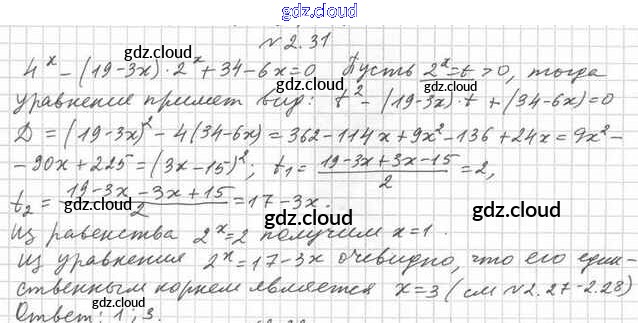 gdz.cloud
№2.31
gdz.cloud
4^x - (19-3x)·2^x + 34-6x=0 Пусть 2^x=t>0, тогда
gdz.cloud gdz.cloud
уравнение примет вид: t^2 - (19-3x)·t + (34-6x)=0
D = (19-3x)^2 - 4(34-6x) = 362-114x+9x^2-136+24x = 9x^2-
gdz.cloud gdz.cloud
-90x+225=(3x-15)^2; t_1 = (19-3x+3x-15)/2 = 2,
t_2 = (19-3x-3x+15)/2 = 17-3x.
gdz.cloud gdz.cloud
gdz.cloud
Из равенства 2^x=2 получим x=1.
gdz.cloud
Из уравнения 2^x=17-3x очевидно, что его един-
gdz.cloud
ственным корнем является x=3 (см №2.27-2.28)
gdz.cloud
gdz.cloud
Ответ: 1; 3.